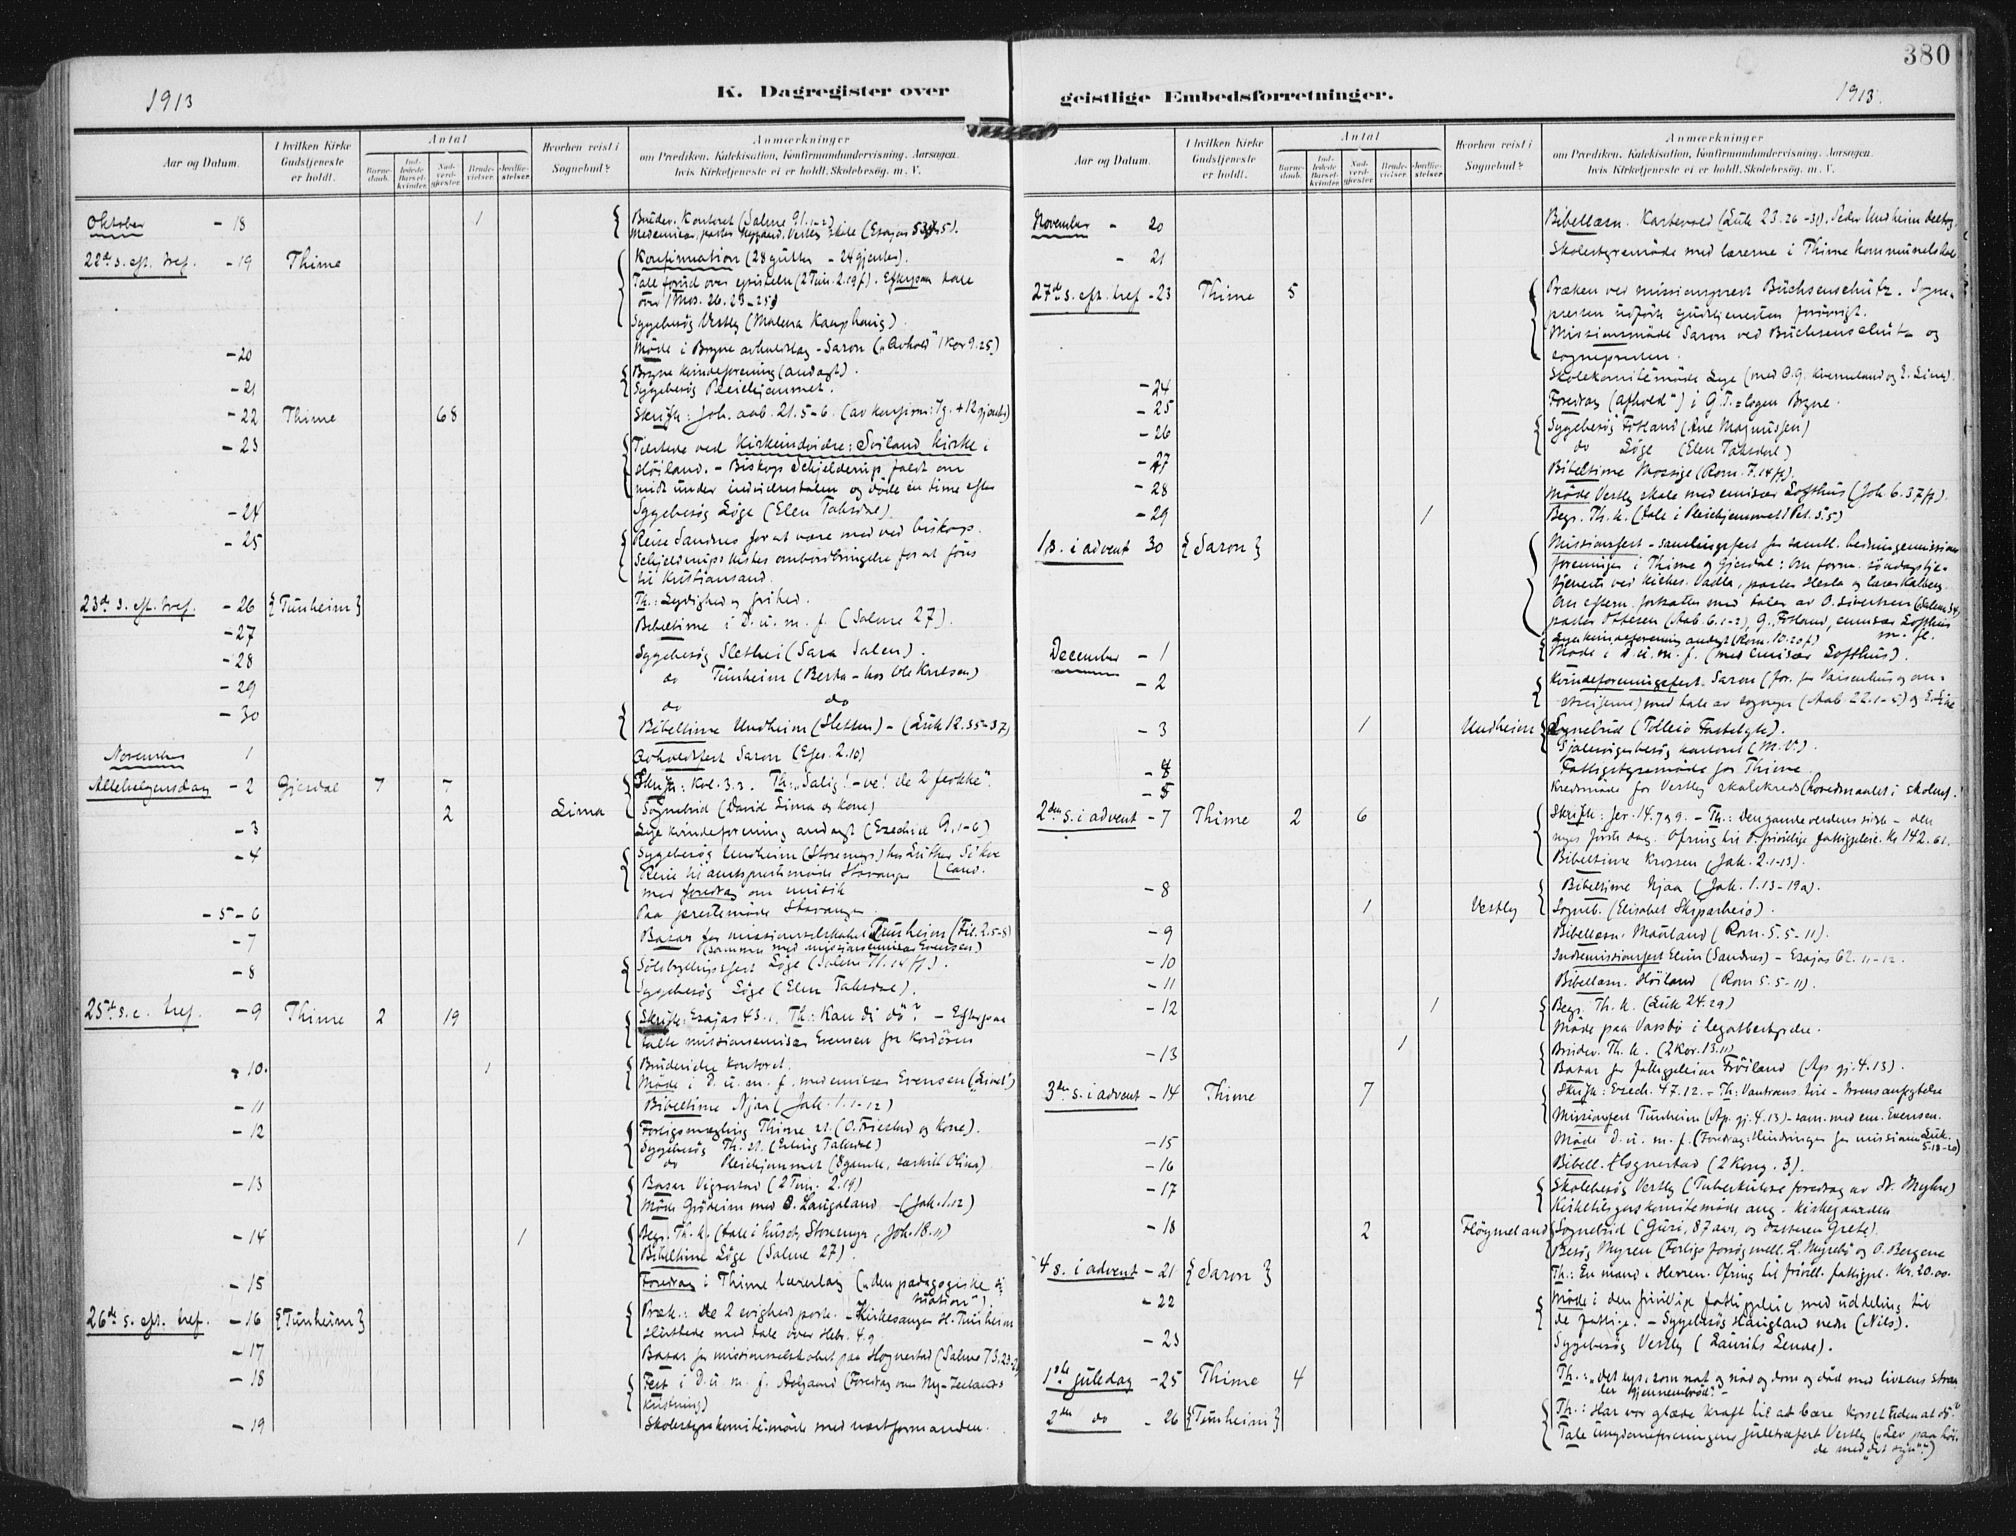 380
1913
K. Dagregister over
geistlige Embedsforretninger.
1913.
Aar og Datum.
I hvilken Kirke Gudstjeneste er holdt.
Antal
Barne-daab.
Ind-ledede Barsel-kvinder.
Nad-verd-gjester.
Brude-vielser.
Jordfæ-stelser.
Hvorhen reist i Sognebud?
Anmærkninger
om Prædiken, Katekisation, Konfirmandundervisning. Aarsagen,
hvis Kirketjeneste ei er holdt. Skolebesøg. m. V.
Oktober - 18 1 Brudev. Kontoret (Salme 91.1-2)
22de s. eft. tref. - 19 Thime Konfirmation (28 gutter - 24 gjenter).
Tale forud over epistelen (2 Tim. 2.19f). Efterpaa tale
over 1 Mos. 26.23-25)
Sygebesøg Vestly (Malena Kauphanig).
- 20 Møde i Bryne avholdslag - Saron („Avhold" 1 Kor 9.25)
Bryne kvindeforening (andagt).
- 21 Sygebesøg Pleiehjemmet.
- 22 Thime 68 Skrift: Joh. aab. 21.5-6.
- 23 Tilstede ved Kirkeindvielse: Sviland Kirke i
Høiland. - Biskop Schjelderup faldt om
midt under indvielsestalen og døde en time efter
- 24 Sygebesøg Løge (Elen Taksdal).
- 25 Reise Sandnes for at være med ved biskop
Schjelderups kistes ombordbringelse for at føres
til Kristiansand.
23de s. eft. tref. - 26 {Tunheim} Th.: Lydighed og frihed.
- 27 Bibeltime i D. u. m. f. (Salme 27).
- 28 Sygebesøg Slethei (Sara Salen).
- 29 do Tunheim (Berta - hos Ole Karlsen)
- 30 do do
Bibeltime Undheim (Sletten) - (Luk 12.35-37)
November 1 Avholdsfest Saron (Efes. 2.10)
Allehelgensdag - 2 Gjesdal 7 7 Skrift: Kol. 3.3. Th: „Salig! - ve! de 2 flokke".
2 Lima Sognebud (David Lima og kone)
- 3 Lye kvindeforening andagt (Ezechiel 9.1-6)
- 4 Sygebesøg Undheim (Storemyr) hos Luther Sikve
Reise til amtsprestmøde Stavanger
med foredrag om musik
- 5 - 6 Paa prestemøde Stavanger
- 7 Basar for missionsselskabet Tunheim (Fil. 2.5-8)
(sammen med missionsemissær Evensen)
- 8 Sølvbryllupsfest Løge (Salme 71.14ff).
Sygebesøg Løge (Elen Taksdal).
25de s. e. tref. - 9 Thime 2 19 Skrift: Esajas 43.1. Th: Kan du dø? - Efterpaa
talte missionsemissær Evensen
- 10. 1 Brudevielse Kontoret.
Møde i D. u. m. f. med emissær Evensen („Livet")
- 11 Bibeltime Njaa (Jak. 1.1-12)
- 12 Forligsmægling Thime st. (O. Friestad og kone).
Sygebesøg Th. st. (Erling Taksdal)
do Pleiehjemmet (8 gamle, særskilt Olina)
- 13 Basar Vigrestad (2 Tim. 2.19)
Møde Grødeim med B. Laugaland - (Jak. 1.12)
- 14 1 Begr. Th. k. (tale i huset, Storemyr, Joh. 18.11)
Bibeltime Løge (Salme 27).
- 15 Foredrag i Thime lærerlag („den pædagogiske situation")
26de s. eft. tref. - 16 {Tunheim} Præk.: De 2 evighedsporte. - Kirkesanger H. Tunheim
tilstede med tale over Hebr. 4.9
- 17 Basar for missionsselskabet paa Hognestad (Salme 73.23-2
- 18 Fest i D. u. m. f. Aalgaard (Foredrag om Ny-Zeelands
Kristning)
- 19 Skolestyrekomitemøde med varaformanden.
Aar og Datum.
I hvilken Kirke Gudstjeneste er holdt.
Antal
Barne-daab.
Ind-ledede Barsel-kvinder.
Nad-verd-gjester.
Brude-vielser.
Jordfæ-stelser.
Hvorhen reist i Sognebud?
Anmærkninger
om Prædiken, Katekisation, Konfirmandundervisning. Aarsagen,
hvis Kirketjeneste ei er holdt. Skolebesøg. m. V.
November - 20 Bibellæsn. Kartevold (Luk 23.26-31). Peder Undheim deltog.
- 21 Skolestyremøde med lærerne i Thime kommuneslokal
27de s. eft. tref - 23 Thime 5 Præken ved missionsprest Büchsenschütz. Sogne-
presten udførte gudstjenesten forøvrigt.
Missionsmøde Saron ved Büchsenschütz og
sognepresten.
- 24 Skolekomitemøde Lye (med O. G. Kverneland og E. Lima).
- 25 Foredrag („Afhold") i G. T.-logen Bryne.
- 26 Sygebesøg Fosland (Ane Magnussen)
do Løge (Elen Taksdal)
- 27 Bibeltime Mossige (Rom. 7.14ff).
- 28 Møde Vestly skole med emissær Lofthus (Joh. 6.37ff).
- 29 1 Begr. Th. k. (tale i Pleiehjemmet 1 Pet. 5.5)
1 s. i advent 30 {Saron} Missionsfest - samlingsfest for samtl. hedningemissions
foreninger i Thime og Gjesdal: Om form. søndagstje-
tjeneste ved kirkes. Vadla, pastor Hesla og lærer Kalberg.
Om efterm. fortsattes med taler av O. Sivertsen (Salme 34)
pastor Ottesen (Aab. 6.1-2), G. Fosland, emissær Lofthus
m. fl.
Lye kvindeforening andagt (Rom. 10.20f)
December - 1 Møde i D. u. m. f. (med emissær Lofthus).
- 2 Kvindeforeningsfest Saron (for. for Vaisenhus og om-
streiferne) med tale av sognepr (Aab 22.1-5) og E. Lima
- 3 1 Undheim Sognebud (Tolleiv Fastebyle).
Sjælesørgerbesøg kontoret (M. V.).
- 4 Fattigstyremøde for Thime.
- 5 Kredsmøde for Vestly skolekreds (hovedmaalet i skolens.
2den s. i advent - 7 Thime 2 6 Skrift: Jer. 14.7 & 9. - Th: Den gamle verdens sidste - den
nyes første dag. Ofring til d. frivillige fattigpleie. Kr 142.61.
Bibeltime Krossen (Jak. 2.1-13).
- 8 Bibeltime Njaa (Jak. 1.13-19a).
1 Vestly Sogneb. (Elisabet Skiparheiø).
- 9 Bibellæsn. Mauland (Rom. 5.5-11).
- 10 Indremissionsfest Elim (Sandnes) - Esajas 62.11-12.
- 11 Bibellæsn. Høiland (Rom 5.5-11).
- 12 1 Begr. Th. k. (Luk 24.29)
Møde paa Vassbø i legatbestyrelse.
- 13 1 Brudev. Th. k. (2 Kor. 13.11)
Basar for fattigpleien Frøiland (Ap. gj. 4.13).
3die s. i advent - 14 Thime 7 Skrift: Ezech. 47.12. - Th: Vantroens tvil - troens anfægtelse
Missionsfest Tunheim (Ap. gj. 4.13) - sam. med em. Evensen.
- 15 Møde D. u. m. f. (Foredrag: Hindringer for missionen Luk. 5.18-20)
- 16 Bibell. Hognestad (2 Kong. 3).
- 17 Skolebesøg Vestly (Tuberkulose foredrag av dr. Myhre)
Kirketilsynskomitemøde ang. kirkegaarden
- 18 2 Fløgmeland Sognebud (Guri, 87 aar, og datteren Grete).
Besøg Myren (Forligsforsøg mell. L. Myrebø og O. Bergene
4 s. i advent - 21 {Saron} Th.: En mand i Herren. Ofring til frivill. fattigpl. Kr. 20.00.
- 22 Møde i den frivillige fattigpleie med uddeling til
de fattige. - Sygebesøg Haugland nedre (Nils).
- 23 Sygebesøg Vestly (Lauriks Lende).
1ste juledag - 25 Thime 4 Th.: „det lys, som nat og nød og dom og død med livsens straa
ler gjennembrød".
2den do - 26 {Tunheim} Th.: Har vor glæde kraft til at bære korset uden at dø?
Tale ungdomsforeningens juletræfest Vestly („Lev paa høi-
de med det syn"!)